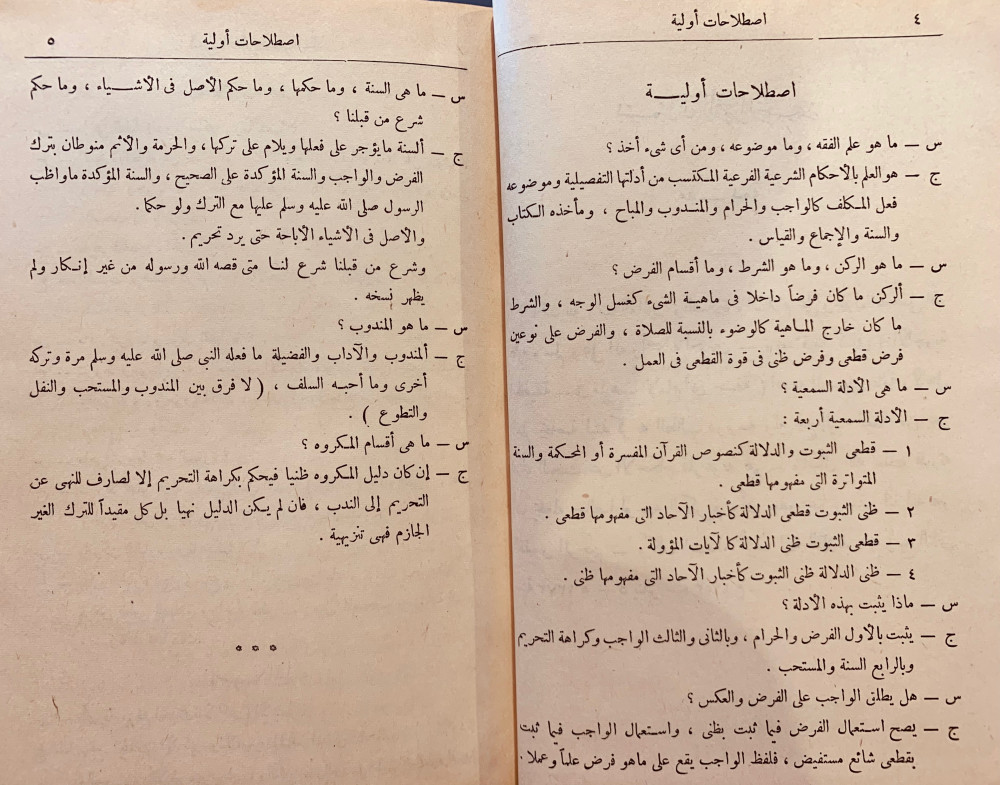 ٤ اصطلاحات أولية
اصطلاحات أوليـــة
س — ما هو علم الفقه ، وما موضوعه ، ومن أى شىء أخذ ؟
ج — هو العلم بالأحكام الشرعية الفرعية المكتسب من أدلتها التفصيلية وموضوعه
فعل المكلف كالواجب والحرام والمنـدوب والمباح ، ومأخذه الكتاب
والسنة والإجماع والقياس .
س — ما هو الركن ، وما هو الشرط ، وما أقسام الفرض ؟
ج — ألركن ما كان فرضاً داخلا فى ماهيـة الشىء كغسل الوجه ، والشرط
ما كان خارج المـاهية كالوضوء بالنسبة للصلاة ، والفرض على نوعين
فرض قطعى وفرض ظنى فى قوة القطعى فى العمل .
س — ما هى الأدلة السمعية ؟
ج — الأدلة السمعية أربعة :
١ — قطعى الثبوت والدلالة كنصوص القرآن المفسرة أو المحكمة والسنة
المتواترة التى مفهومها قطعى .
٢ — ظنى الثبوت قطعى الدلالة كأخبار الآحاد التى مفهومها قطعى .
٣ — قطعى الثبوت ظنى الدلالة كالآيات المؤولة .
٤ — ظنى الدلالة ظنى الثبوت كأخبار الآحاد التى مفهومها ظنى .
س — ماذا يثبت بهذه الأدلة ؟
ج — يثبت بالأول الفرض والحرام ، وبالثانى والثالث الواجب وكراهة التحريم
وبالرابع السنة والمستحب .
س — هل يطلق الواجب على الفرض والعكس ؟
ج — يصح استعمال الفرض فيما ثبت بظنى ، واستعمال الواجب فيما ثبت
بقطعى شائع مستفيض ، فلفظ الواجب يقع على ماهو فرض علماً وعملا .
اصطلاحات أولية ٥
س — ما هى السنة ، وما حكمها ، وما حكم الأصل فى الأشيـــاء ، وما حكم
شرع من قبلنا ؟
ج — ألسنة مايؤجر على فعلها ويلام على تركها ، والحرمة والأثم منوطان بترك
الفرض والواجب والسنة المؤكدة على الصحيح ، والسنة المؤكدة ماواظب
الرسول صلى الله عليه وسلم عليها مع الترك ولو حكما .
والأصل فى الأشياء الأباحة حتى يرد تحريم .
وشرع من قبلنا شرع لنـا متى قصه الله ورسوله من غير إنـكار ولم
يظهر نسخه .
س — ما هو المندوب ؟
ج — ألمندوب والآداب والفضيلة ما فعله النبى صلى الله عليه وسلم مرة وتركه
أخرى وما أحبـه السلف ، ( لا فرق بين المندوب والمستحب والنفل
والتطوع ) .
س — ما هى أقسام المكروه ؟
ج — إن كان دليل المكروه ظنيا فيحكم بكراهة التحريم إلا لصارف للنهى عن
التحريم إلى الندب ، فان لم يكن الدليل نهيا بل كل مفيداً للترك الغير
الجازم فهى تنزيهية .
* * *